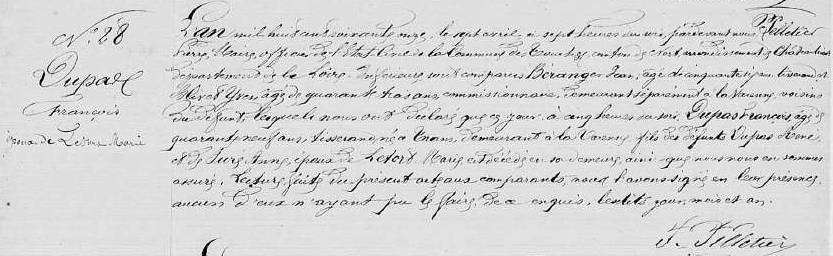 N.° 28
Dupas
François
époux de Lefort Marie
L'an mil huit cent soixante onze, le sept avril, à sept heures du soir, pardevant nous Pelletier
Pierre, Maire, officier de l'Etat Civil de la Commune de Couffé, canton de arrondissement de Chateaubriant
département de la Loire Inférieure ont comparu Béranger Jean, âgé de cinquante six ans, tisserand et
Yves, âgé de quarante trois ans, commissionnaire, demeurant séparément à la Varenne, voisins
du défunt, lesquels nous ont déclaré que ce jour, à cinq heures du soir, Dupas François, âgé de
quarante neuf ans, tisserand, né à demeurant à la Varenne, fils des défunts Dupas René
et de Anne, époux de Lefort Marie, est décédé en sa demeure, ainsi que nous nous en sommes
assuré. Lecture faite du présent acte aux comparants, nous l'avons signé en leur présence,
aucun d'eux n'ayant pu le faire, de ce enquis, lesdits jour, mois et an.
Pelletier